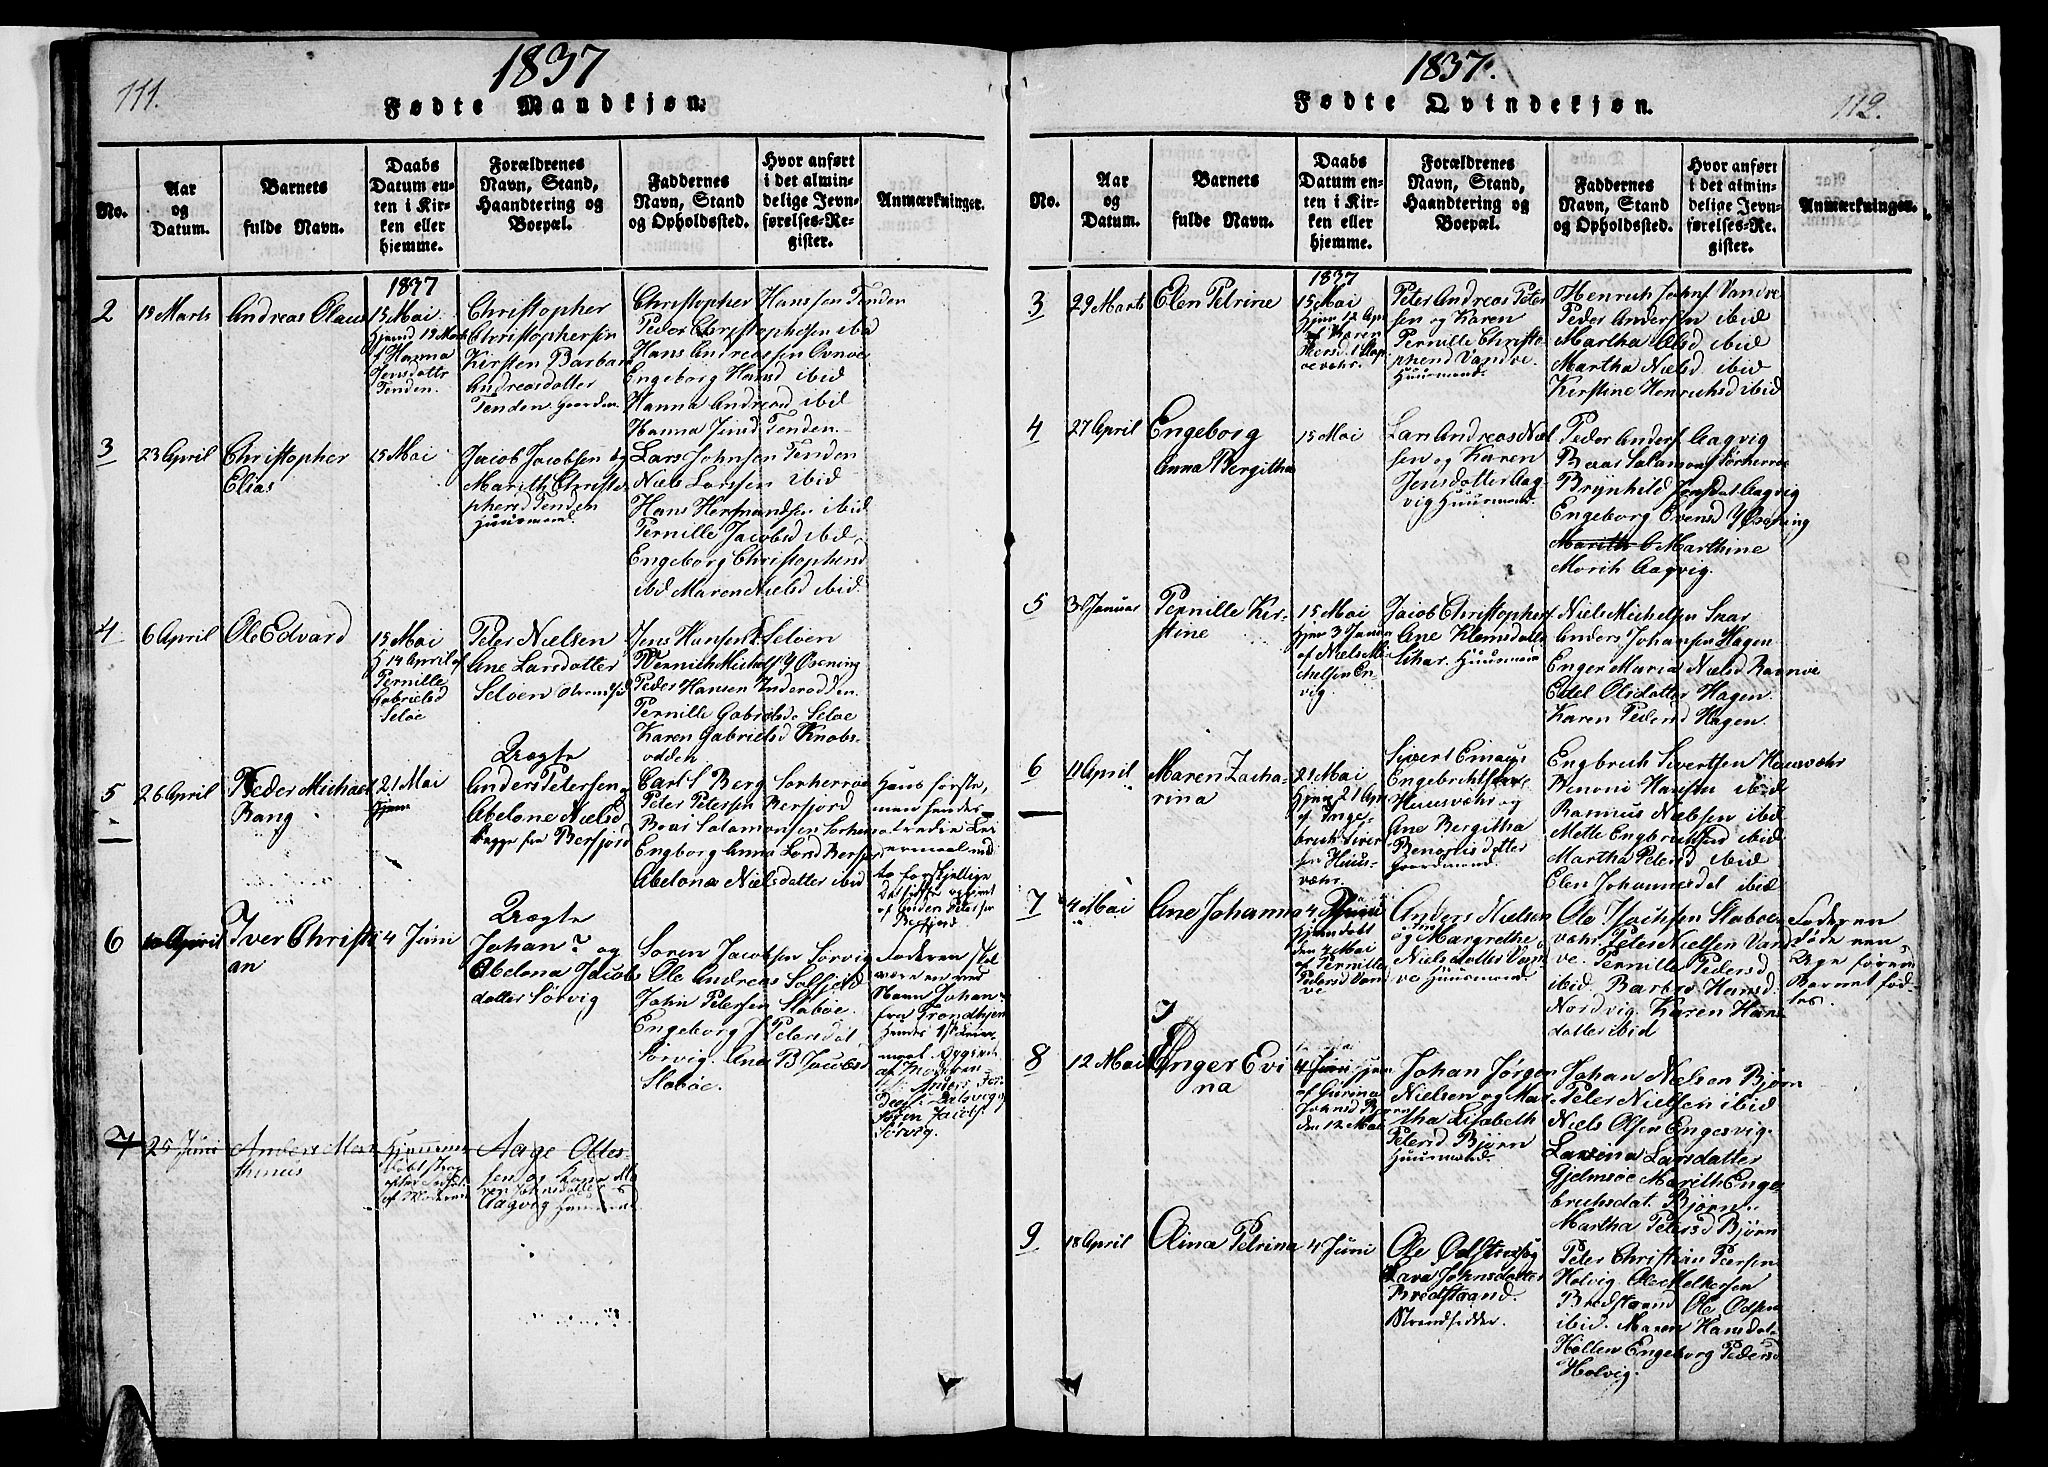 111.
1837
Fødte Mandkjøn.
No.
Aar
og
Datum.
Barnets
fulde Navn.
Daabs
Datum en-
ten i Kir-
ken eller
hjemme.
Forældrenes
Navn, Stand,
Haandtering og
Boepæl.
Faddernes
Navn, Stand
og Opholdssted.
Hvor anført
i det almin-
delige Jevn-
førelses-Re-
gister.
Anmærkninger.
1837
2
18 Marts
Andreas Olaus
15 Mai
Hanna
Jensdatte
Tenden.
Christopher
Christophersen
Kirsten Barbara
Andreasdatter
Tenden Gaardm.
Christopher Hanssen Tenden
Peder Christophersen ibd
Hans Andreassen Ovnve
Engeborg Hansd ibid
Hanna Andreasd ibid
Hanna Jensd Tenden
3
23 April
Christopher
Elias
15 Mai
Jacob Jacobsen og
Marith Christo
phersd Tenden
Huusmand.
Lars Johnsen Tenden
Niels Larssen ibid
Hans Hermandsen ibid
Pernille Jacobsd ibid
Engeborg Christophersd
ibid Maren Nielsd ibid.
4
6 April
Ole Edvard
15 Mai
H 14 April af
Pernille
Gabrielsd
Seløe
Peter Nielsen
Ane Larsdatter
Seløen Strandsid
Jens Hansen Seløen
Peder Hansen Inderodden
Pernille Gabrielsd Seløe
Karen Gabrielsd Knobs-
odden
5
26 April
Peder Michael
Bang
21 Mai
hjem
Uægte
Anders Petersen og
Abelone Nielsd
begge fra Bersfjord
Carl S Berg Sørherrøe
Peter Petersen Bersfjord
Beias Salamonsen Sørher
Engborg Anna Larsd Bersfjord
Abelona Nielsdatter ibid
Hans første,
men hendes
tredie Lei
ermaal med
to forskjellige
af Anders Petersen
Bersfjord
6
10 April
Iver Christi
an
4 Juni
Uægte
Johan? og
Abelona Jacobs
datter Sørvig
Søren Jacobsen Sørvig
Ole Andreas Solfjeld
John Petersen Stabøe.
Engeborg J Petersdat.
Sørvig. Ane B Jacobsd
Stabøe.
Faderen skal
være en ved
Navn Johan
fra Trondhjem
Hendes 1ste Leier
maal. Opgivet
af Moderen
Søren Jacobs
Sørvig.
7
25 Juni
Anders Mar
thinus
Hjemme
døbt strax
af Moderen
Aage Olles-
sen og
Aagvig
112.
1837.
Fødte Qvindekjøn.
No.
Aar
og
Datum.
Barnets
fulde Navn.
Daabs
Datum en-
ten i Kir-
ken eller
hjemme.
Forældrenes
Navn, Stand,
Haandtering og
Boepæl.
Faddernes
Navn, Stand
og Opholdssted.
Hvor anført
i det almin-
delige Jevn-
førelses-Re-
gister.
Anmærkninger.
1837
3
29 Marts
Elen Petrine
15 Mai
Hjem 12 Apr
af Karen
Peter Andreas Peter
sen og Karen
Pernille Christo
phersd Vandve.
Huusmand.
Henrich Johns Vandve
Peder Andersen ibid
Martha Olsd ibid
Martha Nielsd ibid
Kirstine Henrichsd ibid
4
27 April
Engeborg
Anna Bergitha
15 Mai
Lars Andreas Niel
sen og Karen
Jensdatter Aag-
vig Huusmand.
Peder Anders Aagvig
Beias Salamons Sørherrøe
Brynhild Jensdat Aagvig
Engeborg Evensd Y Øxning
Marith O Marthine
Morih Aagvig.
5
3 Januar
Pernille Kir-
stine
15 Mai
Hjem 3 Januar
af Niels Mi
chelsen
Jacob Christophers
Ane Klemsdatter
Skar. Huusmand
Niels Michelsen Skar
Anders Johansen Hagen
Enger Maria Nielsd Rannve
Edel Olsdatter Hagen
Karen Pedersd Hagen.
6
11 April
Maren Zacha-
rina
21 Mai
Hjem 21 Apr
af Inge-
brich Siver
sen Huus-
væhr.
Sivert Emaus
Engebrichtsen
Huusvæhr og
Ane Bergitha
Benonisdatter
Gaardmand.
Engbrich Sivertsen Huusvæhr
Benoni Hansen ibid
Rasmus Nielsen ibid
Mette Engbrichtsd ibid
Martha Petersd ibid
Elen Johannesdat ibid
7
4 Mai
Ane Johanna
4 Juni
Hjemdøbt
den 4 Mai
af Pernille
Pedersd Van
ve
Anders Nielsen
og Margrethe
Nielsdatter Van
ve Huusmand.
Ole Isachsen Stabøe
væhr. Peter Nielsen Vand
ve. Pernille Pedersd
ibid. Barbro Hansd.
Nordvig. Karen Hans
datter ibid
Faderen
døde een
Uge førend
Barnet fød-
tes.
8
12 Mai
Inger Evi
na
4 Juni hjem
af Gurina
Johnsd Bjørn
den 12 Mai
Johan Jørgen
Nielsen og Mar
tha Lisabeth
Petersd Bjørn
Huusmand.
Johan Nielsen Bjørn
Peter Nielsen ibid
Niels Olsen Engesvig.
Lavina Larsdatter
Gjelmsøe Marith Enge-
brichsdat. Bjørn.
Martha Petersd Bjørn
9
18 April
Olina Petrina
4 Juni
Ole Odsteens og
Lava Johnsdatter
Bredstrand.
Strandsidder.
Peter Christian Peersen
Holvig. Ole Melkersen
Bredstrand Ole Odsen
ibid. Maren Hansdat.
Holten Engeborg Pedersd
Holvig.